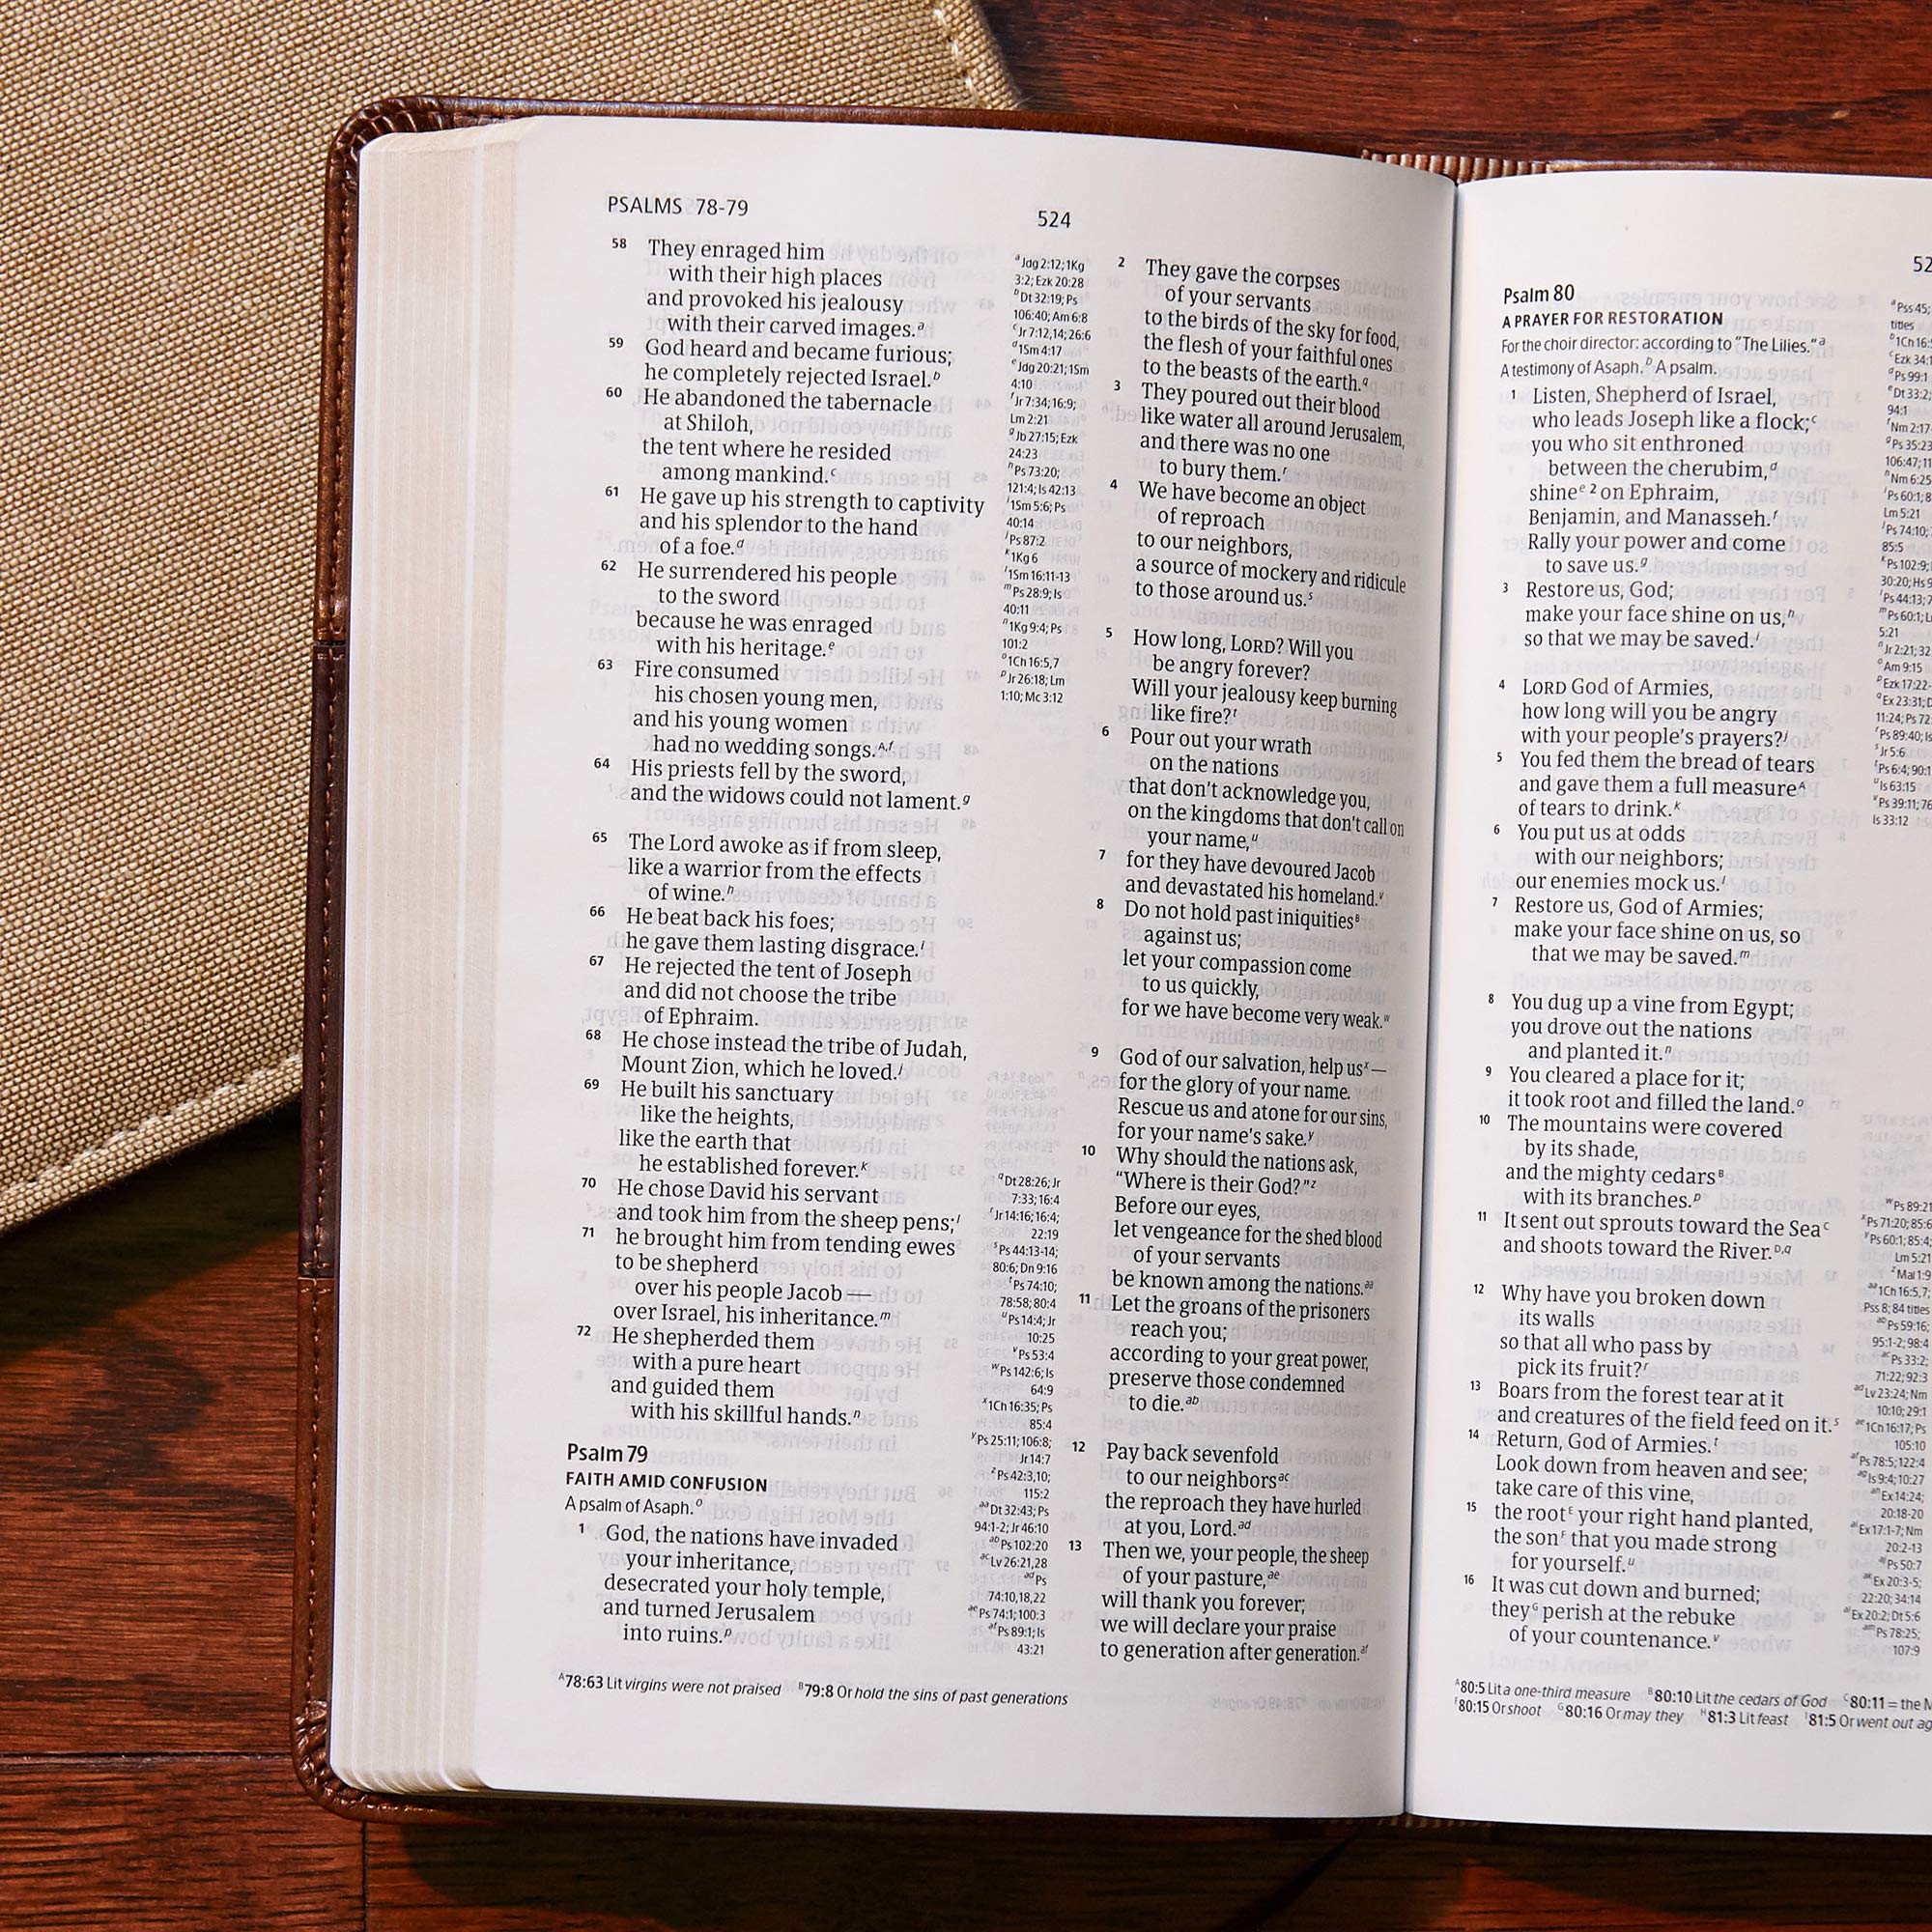 PSALMS 78-79
524
58 They enraged him
with their high places
and provoked his jealousy
with their carved images.a
59 God heard and became furious;
he completely rejected Israel.b
60 He abandoned the tabernacle
at Shiloh,
the tent where he resided
among mankind.c
61 He gave up his strength to captivity
and his splendor to the hand
of a foe.d
62 He surrendered his people
to the sword
because he was enraged
with his heritage.e
63 Fire consumed
his chosen young men,
and his young women
had no wedding songs.A,f
64 His priests fell by the sword,
and the widows could not lament.g
65 The Lord awoke as if from sleep,
like a warrior from the effects
of wine.h
66 He beat back his foes;
he gave them lasting disgrace.i
67 He rejected the tent of Joseph
and did not choose the tribe
of Ephraim.
68 He chose instead the tribe of Judah,
Mount Zion, which he loved.j
69 He built his sanctuary
like the heights,
like the earth that
he established forever.k
70 He chose David his servant
and took him from the sheep pens;l
71 he brought him from tending ewes
to be shepherd
over his people Jacob —
over Israel, his inheritance.m
72 He shepherded them
with a pure heart
and guided them
with his skillful hands.n
Psalm 79
FAITH AMID CONFUSION
A psalm of Asaph.o
1 God, the nations have invaded
your inheritance,
desecrated your holy temple,
and turned Jerusalem
into ruins.p
a Jdg 2:12; 1Kg
3:2; Ezk 20:28
b Dt 32:19; Ps
106:40; Am 6:8
c Jr 7:12,14; 26:6
d 1Sm 4:17
e Jdg 20:21; 1Sm
4:10
f Jr 7:34; 16:9;
Lm 2:21
g Jb 27:15; Ezk
24:23
h Ps 73:20;
121:4; Is 42:13
i 1Sm 5:6; Ps
40:14
j Ps 87:2
k 1Kg 6
l 1Sm 16:11-13
m Ps 28:9; Is
40:11
n 1Kg 9:4; Ps
101:2
o 1Ch 16:5,7
p Jr 26:18; Lm
1:10; Mc 3:12
q Dt 28:26; Jr
7:33; 16:4
r Jr 14:16; 16:4;
22:19
s Ps 44:13-14;
80:6; Dn 9:16
t Ps 74:10;
78:58; 80:4
u Ps 14:4; Jr
10:25
v Ps 53:4
w Ps 142:6; Is
64:9
x 1Ch 16:35; Ps
85:4
y Ps 25:11; 106:8;
Jr 14:7
z Ps 42:3,10;
115:2
aa Dt 32:43; Ps
94:1-2; Jr 46:10
ab Ps 102:20
ac Lv 26:21,28
ad Ps
74:10,18,22
ae Ps 74:1; 100:3
af Ps 89:1; Is
43:21
2 They gave the corpses
of your servants
to the birds of the sky for food,
the flesh of your faithful ones
to the beasts of the earth.q
3 They poured out their blood
like water all around Jerusalem,
and there was no one
to bury them.r
4 We have become an object
of reproach
to our neighbors,
a source of mockery and ridicule
to those around us.s
5 How long, LORD? Will you
be angry forever?
Will your jealousy keep burning
like fire?t
6 Pour out your wrath
on the nations
that don't acknowledge you,
on the kingdoms that don't call on
your name,u
7 for they have devoured Jacob
and devastated his homeland.v
8 Do not hold past iniquitiesB
against us;
let your compassion come
to us quickly,
for we have become very weak.w
9 God of our salvation, help usx—
for the glory of your name.
Rescue us and atone for our sins,
for your name's sake.y
10 Why should the nations ask,
“Where is their God?”z
Before our eyes,
let vengeance for the shed blood
of your servants
be known among the nations.aa
11 Let the groans of the prisoners
reach you;
according to your great power,
preserve those condemned
to die.ab
12 Pay back sevenfold
to our neighborsac
the reproach they have hurled
at you, Lord.ad
13 Then we, your people, the sheep
of your pasture,ae
will thank you forever;
we will declare your praise
to generation after generation.af
A78:63 Lit virgins were not praised B79:8 Or hold the sins of past generations
52
Psalm 80
A PRAYER FOR RESTORATION
For the choir director: according to “The Lilies.”a
A testimony of Asaph.b A psalm.
1 Listen, Shepherd of Israel,
who leads Joseph like a flock;c
you who sit enthroned
between the cherubim,d
shinee 2 on Ephraim,
Benjamin, and Manasseh.f
Rally your power and come
to save us.g
3 Restore us, God;
make your face shine on us,h
so that we may be saved.i
4 LORD God of Armies,
how long will you be angry
with your people's prayers?j
5 You fed them the bread of tears
and gave them a full measureA
of tears to drink.k
6 You put us at odds
with our neighbors;
our enemies mock us.l
7 Restore us, God of Armies;
make your face shine on us, so
that we may be saved.m
8 You dug up a vine from Egypt;
you drove out the nations
and planted it.n
9 You cleared a place for it;
it took root and filled the land.o
10 The mountains were covered
by its shade,
and the mighty cedarsB
with its branches.p
11 It sent out sprouts toward the SeaC
and shoots toward the River.D,q
12 Why have you broken down
its walls
so that all who pass by
pick its fruit?r
13 Boars from the forest tear at it
and creatures of the field feed on it.s
14 Return, God of Armies.t
Look down from heaven and see;
take care of this vine,
15 the rootE your right hand planted,
the sonF that you made strong
for yourself.u
16 It was cut down and burned;
theyG perish at the rebuke
of your countenance.v
a Pss 45;
titles
b 1Ch 16:
c Ezk 34:1
d Ps 99:1
e Dt 33:2;
94:1
f Nm 2:17-
g Ps 35:23
106:47; 11
h Nm 6:25
i Ps 60:1; 8
Lm 5:21
j Ps 74:10;
85:5
k Ps 102:9;
30:20; Hs 9
l Ps 44:13; 7
m Ps 60:1; L
5:21
n Jr 2:21; 32
o Am 9:15
p Ezk 17:22-
q Ex 23:31; D
11:24; Ps 72
r Ps 89:40; Is
s Jr 5:6
t Ps 6:4; 90:1
u Is 63:15
v Ps 39:11; 76
Is 33:12
w Ps 89:21
x Ps 71:20; 85:6
y Ps 60:1; 85:4;
Lm 5:21
z Mal 1:9
aa 1Ch 16:5,7;
Pss 8; 84 titles
ab Ps 59:16;
95:1-2; 98:4
ac Ps 33:2;
71:22; 92:3
ad Lv 23:24; Nm
10:10; 29:1
ae 1Ch 16:17; Ps
105:10
af Ps 78:5; 122:4
ag Is 9:4; 10:27
ah Ex 14:24;
20:18-20
ai Ex 17:1-7; Nm
20:2-13
aj Ps 50:7
ak Ex 20:3-5;
22:20; 34:14
al Ex 20:2; Dt 5:6
am Ps 78:25;
107:9
A80:5 Lit a one-third measure B80:10 Lit the cedars of God C80:11 = the M
F80:15 Or shoot G80:16 Or may they H81:3 Lit feast I81:5 Or went out ag